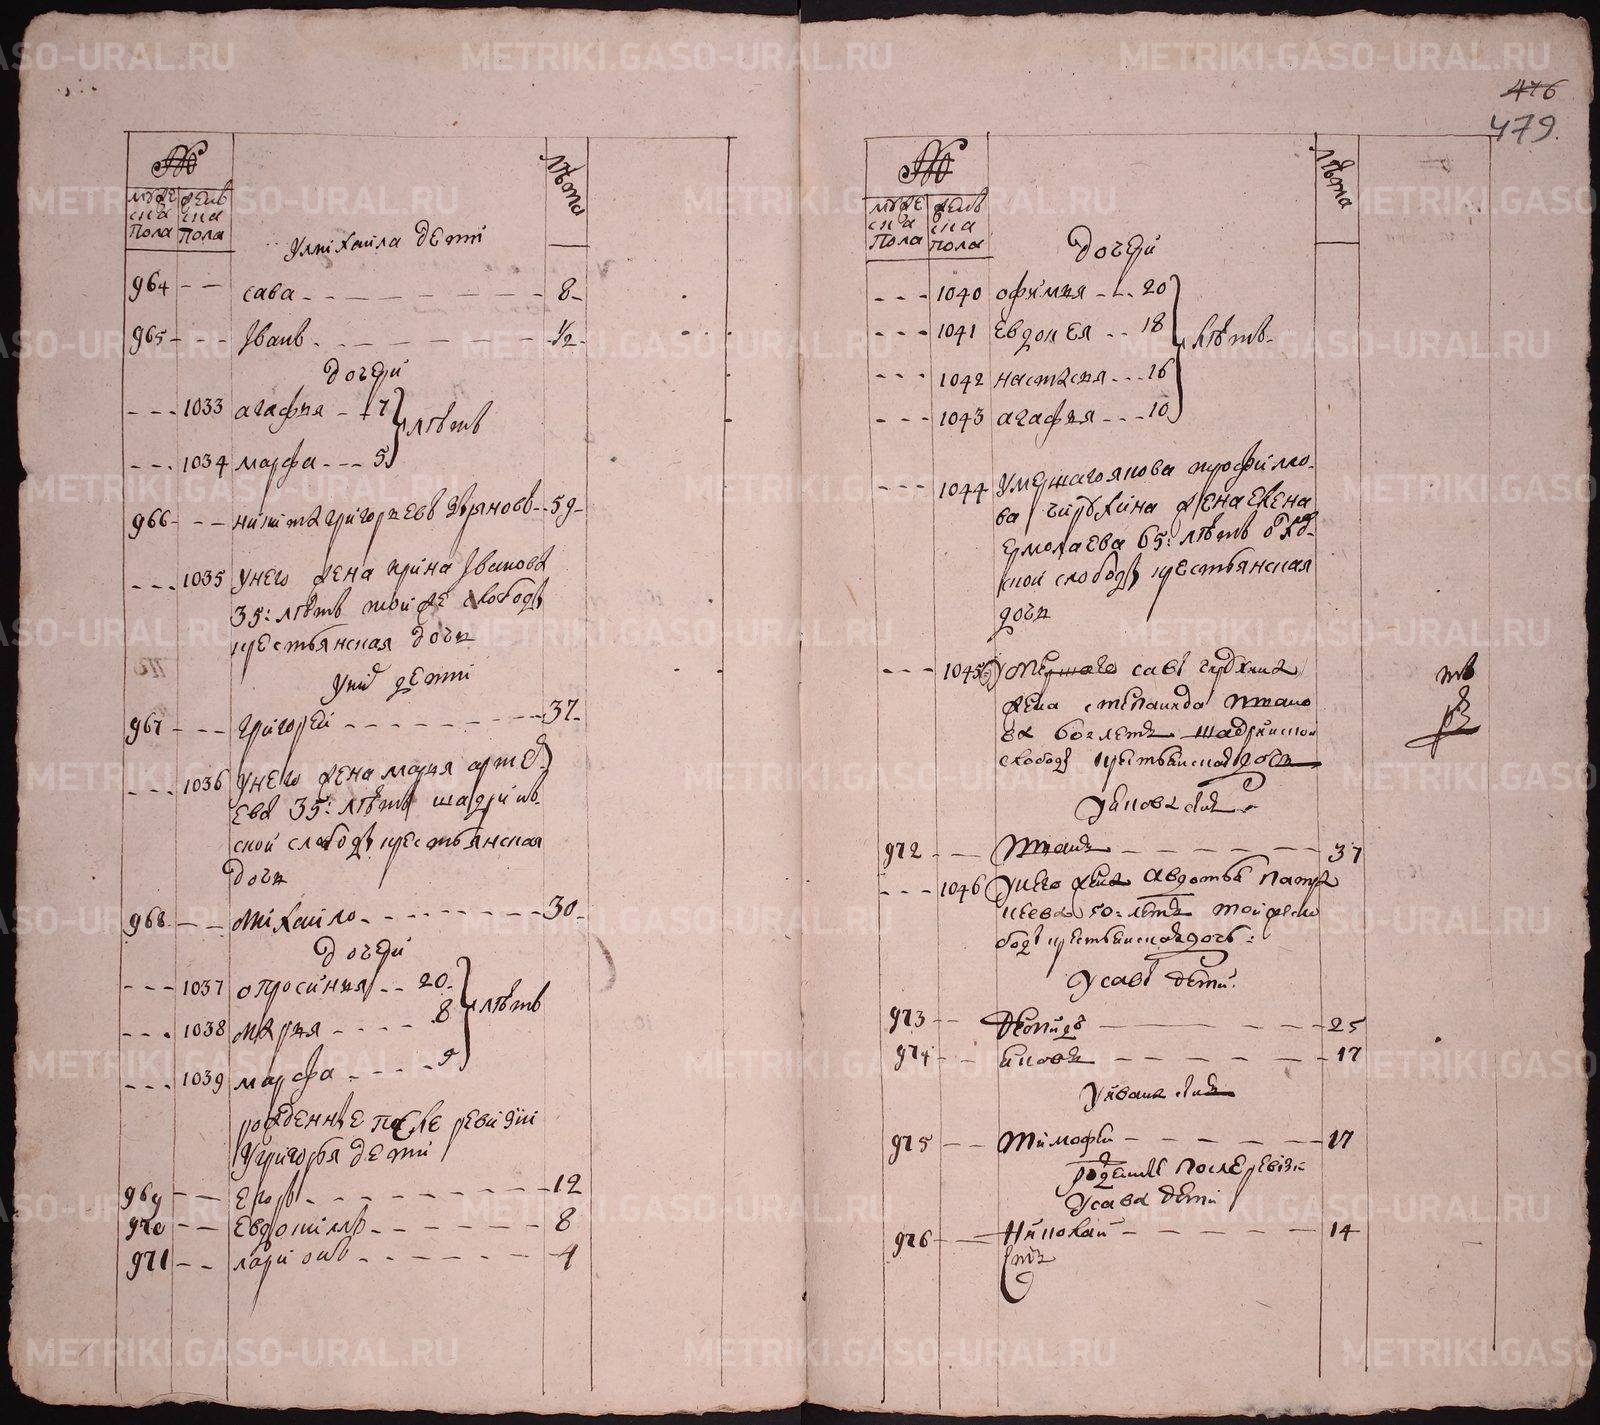 №
мужеска пола
женска пола
лѣта
Умихаила дети
964 сава 8
965 Iванъ 1/2
дочери
1033 агафия 7
лѣтъ
1034 марфа 5
966 никита григориевъ 59
1035 Унего жена ирина Iванова
35: лѣтъ той же слободы
крестьянская дочи
Уних дети
967 григореi 37
1036 Унего жена мария
ева 35: лѣтъ шадрин
ской слободы крестьянская
дочи
968 михаило 30
дочери
1037 опросиния 20
1038 мария 8
лѣтъ
1039 марфа
рожденные после ревизiи
Угригорья дети
969 Егоръ 12
970 Евдокимъ 8
971 ларионъ 4
476
479.
№
мужеска пола
женска пола
лѣта
дочери
1040 офимия 20
1041 Евдокея 18
лѣтъ
1042 настасия 16
1043 агафия 10
1044 Умершаго
ва жена
Ермолаева 65: лѣтъ
ской слободы крестьянская
дочи
1045 Умершаго савы
жена степанида
ва 60 летъ шадринской
слободы крестьянская дочь
Уякова сынъ
972 37
1046 Унего жена авдотья
50: летъ тойже сло
боды крестьянская дочь:
Усавы дети:
973 25
974 яковъ 17
Уивана сынъ
975 тимофей 17
рожденные после ревизии
Усавы дети
976 Николай 14